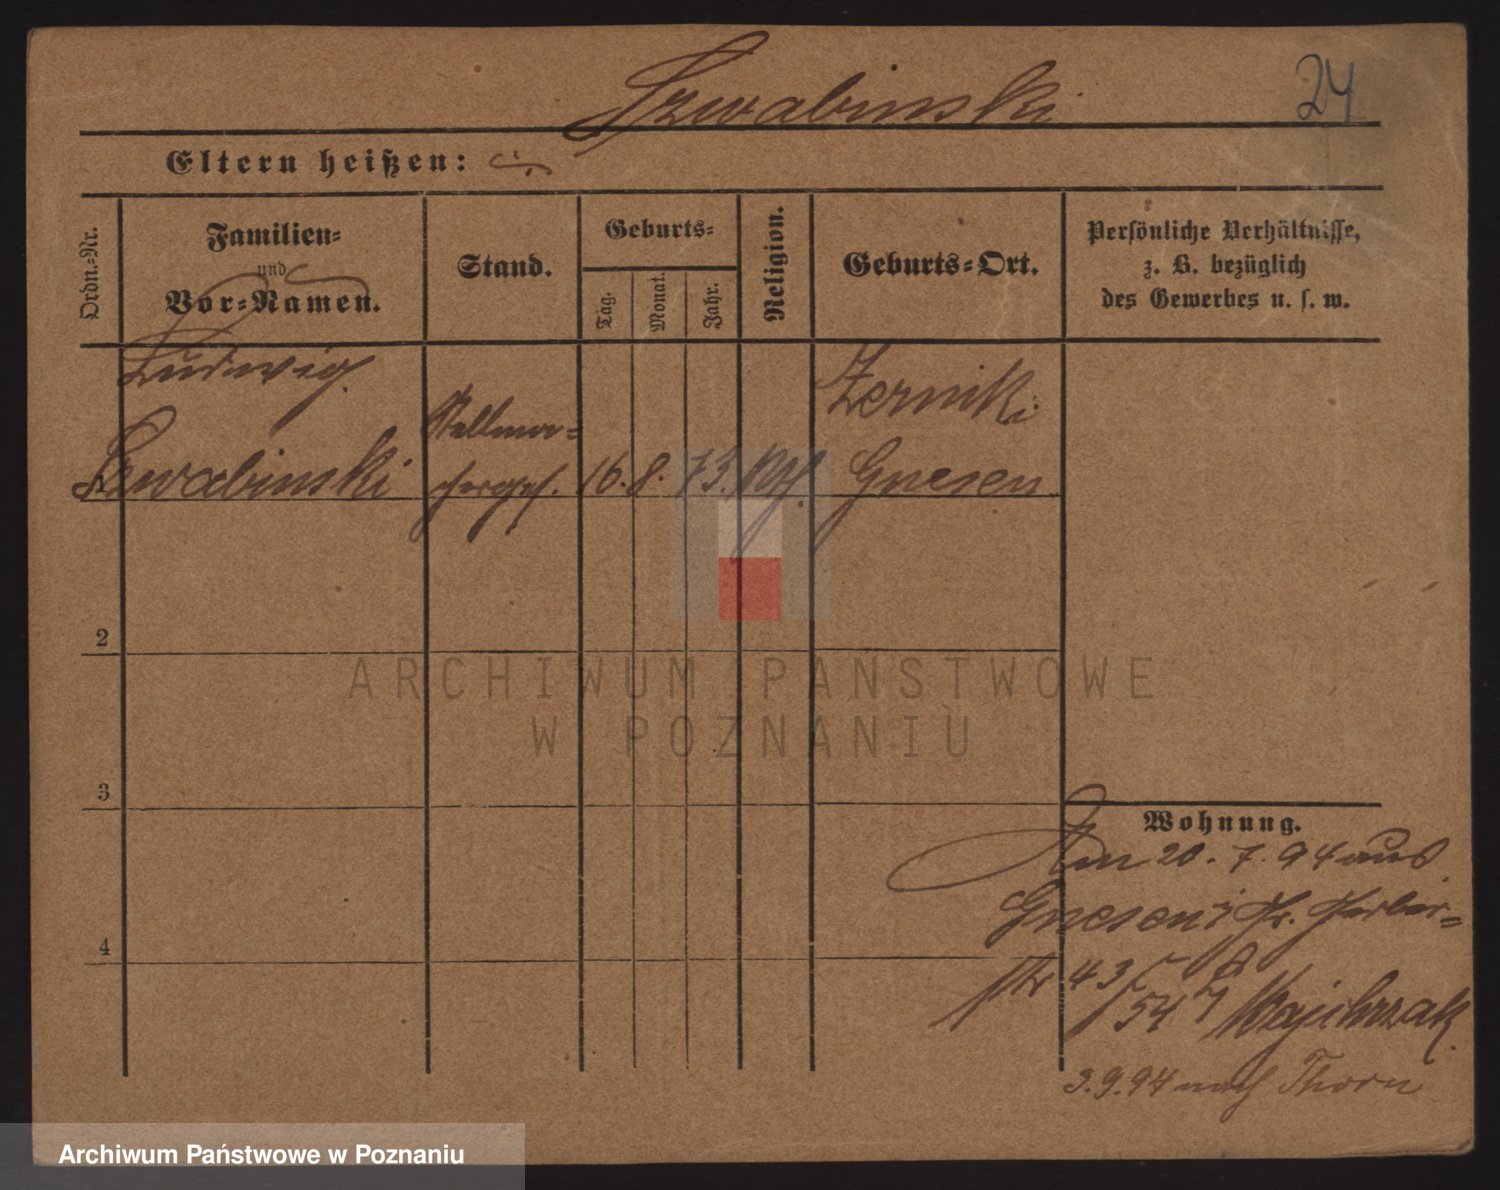 Szwabinski
24
Eltern heißen:
Ordn.-Nr.
Familien-
und
Vor-Namen.
Stand.
Geburts-
Tag.
Monat.
Jahr.
Religion.
Geburts-Ort.
Persönliche Verhältnisse,
z. B. bezüglich
des Gewerbes u. s. w.
Ludwig
Szwabinski
Stellma-
cherges.
16. 8. 73.
Kath.
Zerniki
Gnesen
2
3
4
ARCHIWUM PAŃSTWOWE
W POZNANIU
Wohnung.
Am 20. 7. 94 aus
Gnesen Gr. Gerber-
str 43
54 Majchrzak
3.9.94 nach Thorn
Archiwum Państwowe w Poznaniu